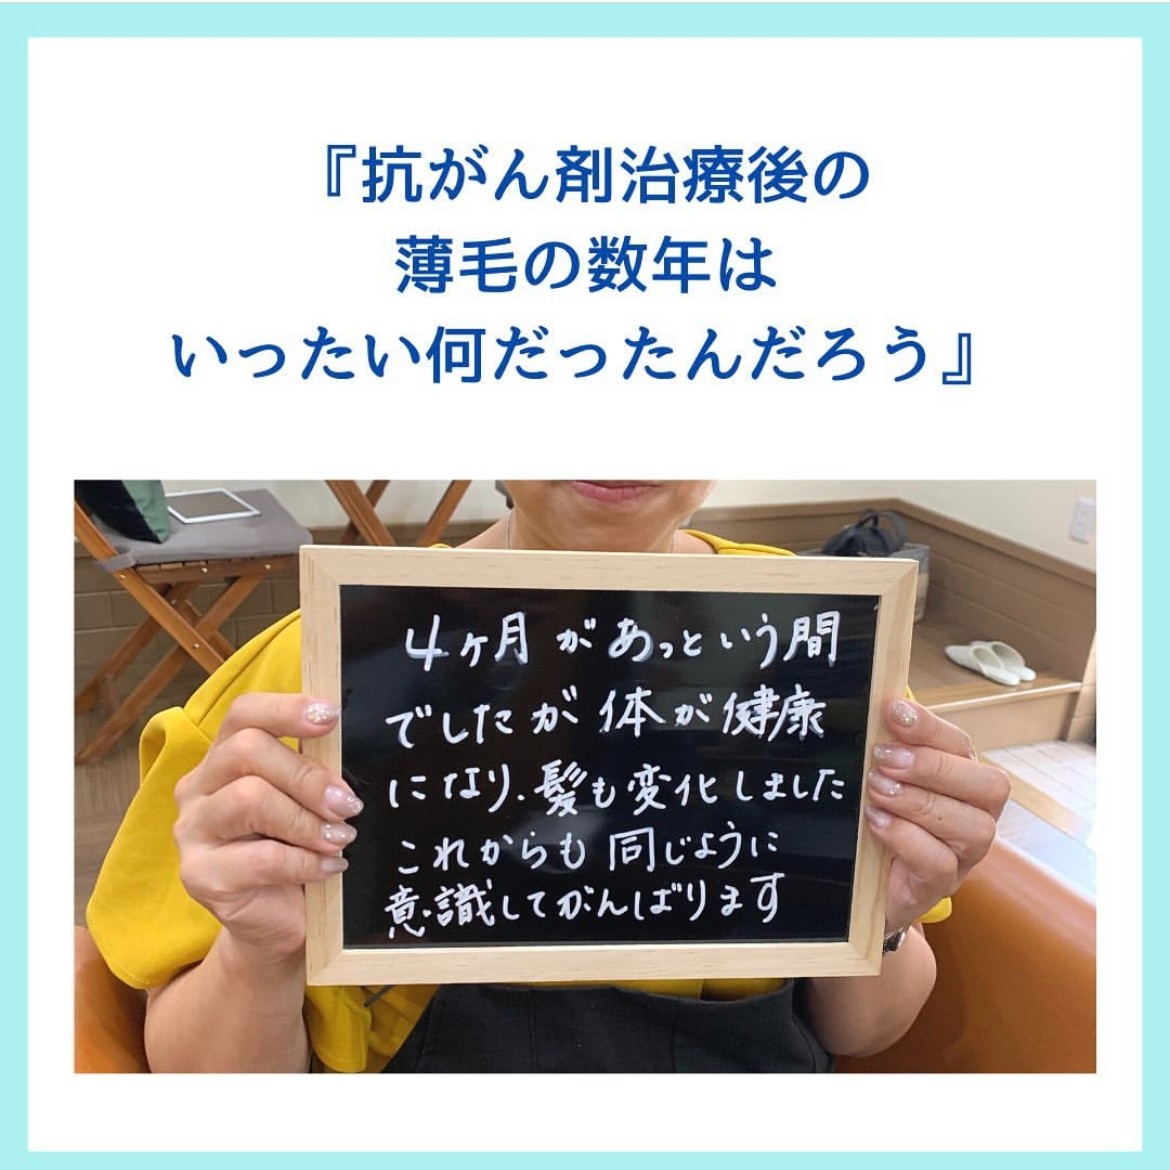 『抗がん剤治療後の
薄毛の数年は
いったい何だったんだろう』
4ヶ月があっという間
でしたが体が健康
になり、髪も変化しました
これからも同じように
意識してがんばります